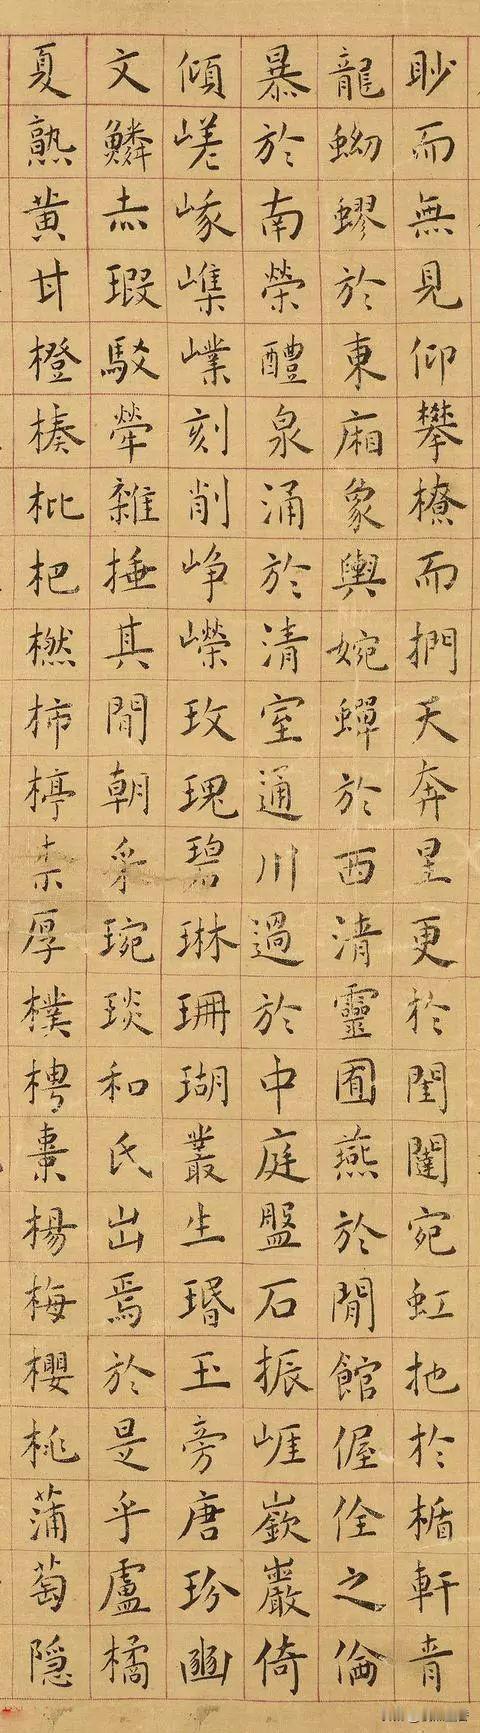 眇而無見仰攀橑而捫天奔星更於閨闥宛虹扡於楯軒青
龍蚴蟉於東廂象輿婉蟬於西清靈囿燕於閒館偓佺之倫
暴於南榮醴泉涌於清室通川過於中庭盤石振崕嶔巖倚
傾嵯峨㠍嶫刻削崢嶸玫瑰碧琳珊瑚叢生瑉玉旁唐玢豳
文鱗赤瑕駁犖雜捶其閒朝采琬琰和氏出焉於是乎盧橘
夏熟黄甘橙楱枇杷橪柿楟柰厚樸梬棗楊梅櫻桃蒲萄隱